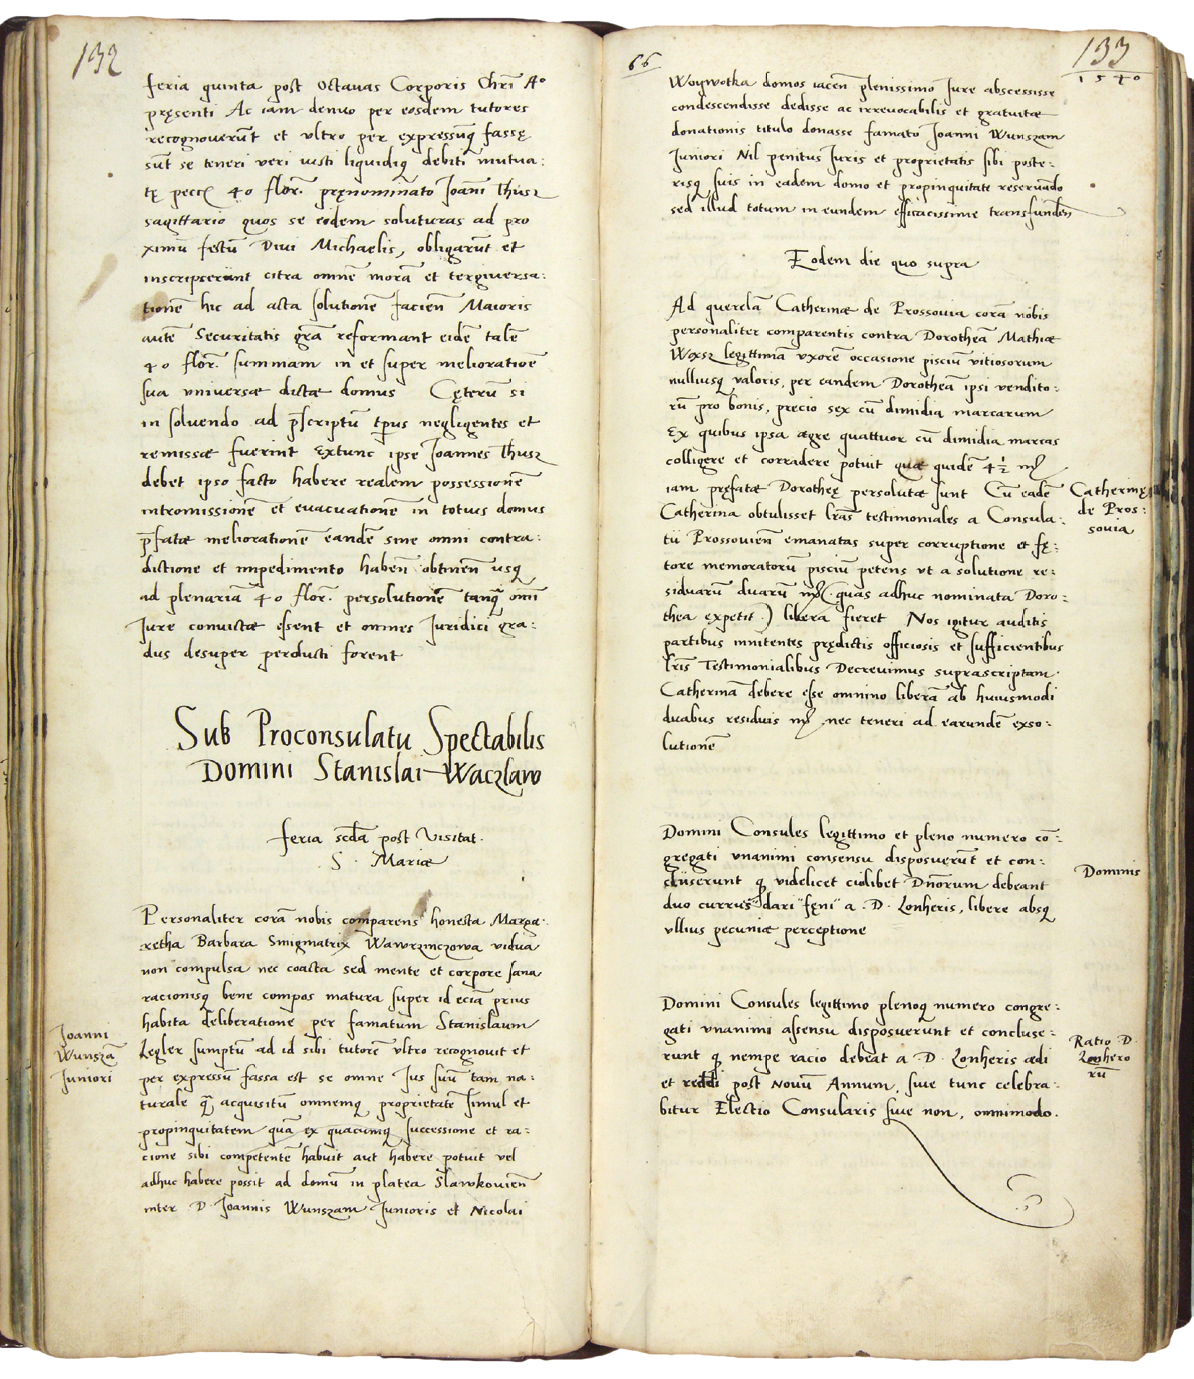 132
feria quinta post Octauas Corporis Chri͂ Aº
pręsenti Ac iam denuo per eosdem tutores
recognouerūt et vltro per expressūq fassę
sūt se teneri veri iusti liquidiq debiti mutua:
tę pecc 40 flor. pręnominato Joāni Thusz
sagittario quos se eidem soluturas ad pro
ximū festū Diui Michaelis, obligarūt et
inscripserunt citra omnē morā et tergiuersa:
tionē hic ad acta solutionē facień Maioris
autē Securitatis grā reformant eidē talē
40 flor. summam in et super melioratioē
sua vniuersæ dictæ domus Cęterū si
in soluendo ad p̄scriptū tp̄us negligentes et
remissæ fuerint Extunc ipse Joannes Thusz
debet ipso facto habere realem possessionē
intromissionē et euacuationē in totius domus
p̄fatæ meliorationē eandē sine omni contra:
dictione et impedimento habeń obtineń usq
ad plenariā 40 flor. persolutionē tanq̄ om̄i
Jure conuictæ essent et omnes Juridici gra:
dus desuper perducti forent
Sub Proconsulatu Spectabilis
Domini Stanislai Waczlaw
feria scdā post Visitat.
S. Mariæ
Personaliter corā nobis comparens honesta Marga:
retha Barbara Smigmatrix Wawrzinczowa vidua
non compulsa nec coacta sed mente et corpore sana
racionisq bene compos matura super id eciā prius
habita deliberatione per famatum Stanislaum
Joanni
Wunszā
Juniori
Legler sumptū ad id sibi tutorē vltro recognouit et
per expressū fassa est se omne Jus suū tam na:
turale q̄ acquisitū omnemq proprietatē simul et
propinquitatem quā ex quacumq successione et ra:
cione sibi competentē habuit aut habere potuit vel
adhuc habere possit ad domū in platea Slawkouień
inter D. Joannis Wunszam Junioris et Nicolai
66
133
1540
Woywotka domos iaceń plenissimo Jure abscessisse
condescendisse dedisse ac irreuocabilis et gratuitæ
donationis titulo donasse famato Joanni Wunszam
Juniori Nil penitus Juris et proprietatis sibi poste:
risq suis in eadem domo et propinquitate reseruādo
sed illud totum in eundem efficacissime transfundeń
Eodem die quo supra
Ad querelā Catherinæ de Prossouia corā nobis
personaliter comparentis contra Dorotheā Mathiæ
Woxsz legittimā vxorē occasione pisciū vitiosorum
nulliusq valoris, per eandem Dorotheā ipsi vendito:
rū pro bonis, precio sex cū dimidia marcarum
Ex quibus ipsa ægre quattuor cū dimidia marcas
colligere et corradere potuit quæ quidē 4½ mr̄
iam pręfatæ Dorotheę persolutæ sunt Cū eadē
Catherinę
de Pros:
souia
Catherina obtulisset lr̄as testimoniales a Consula:
tū Prossouień emanatas super corruptione et fę:
tore memoratorū pisciū petens vt a solutione re:
siduarū duarū mr̄. (quas adhuc nominata Doro:
thea expetit.) libera fieret Nos igitur auditis
partibus innitentes prędictis officiosis et sufficientibus
lr̄is Testimonialibus Decreuimus suprascriptam
Catherinā debere esse omnino liberā ab huiusmodi
duabus residuis mr̄. nec teneri ad earundē exso:
lutionē
Domini Consules legittimo et pleno numero cō:
gregati vnanimi consensu disposuerūt et con:
cluserunt q videlicet cuilibet Dnorum debeant
Dominis
duo currus dari fęni a D. Lonheris, libere absq
vllius pecuniæ perceptione
Domini Consules legittimo plenoq numero congre:
gati vnanimi assensu disposuerunt et concluse:
Ratio D
Lonhero
rū
runt q nempe racio debeat a D. Lonheris ædi
et reddi post nouū Annum, siue tunc celebra:
bitur Electio Consularis siue non, omnimodo.